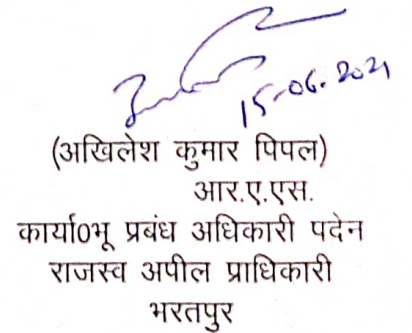 15-06-2021
(अखिलेश कुमार पिपल)
आर.ए.एस.
कार्या0भू प्रबंध अधिकारी पदेन
राजस्व अपील प्राधिकारी
भरतपुर